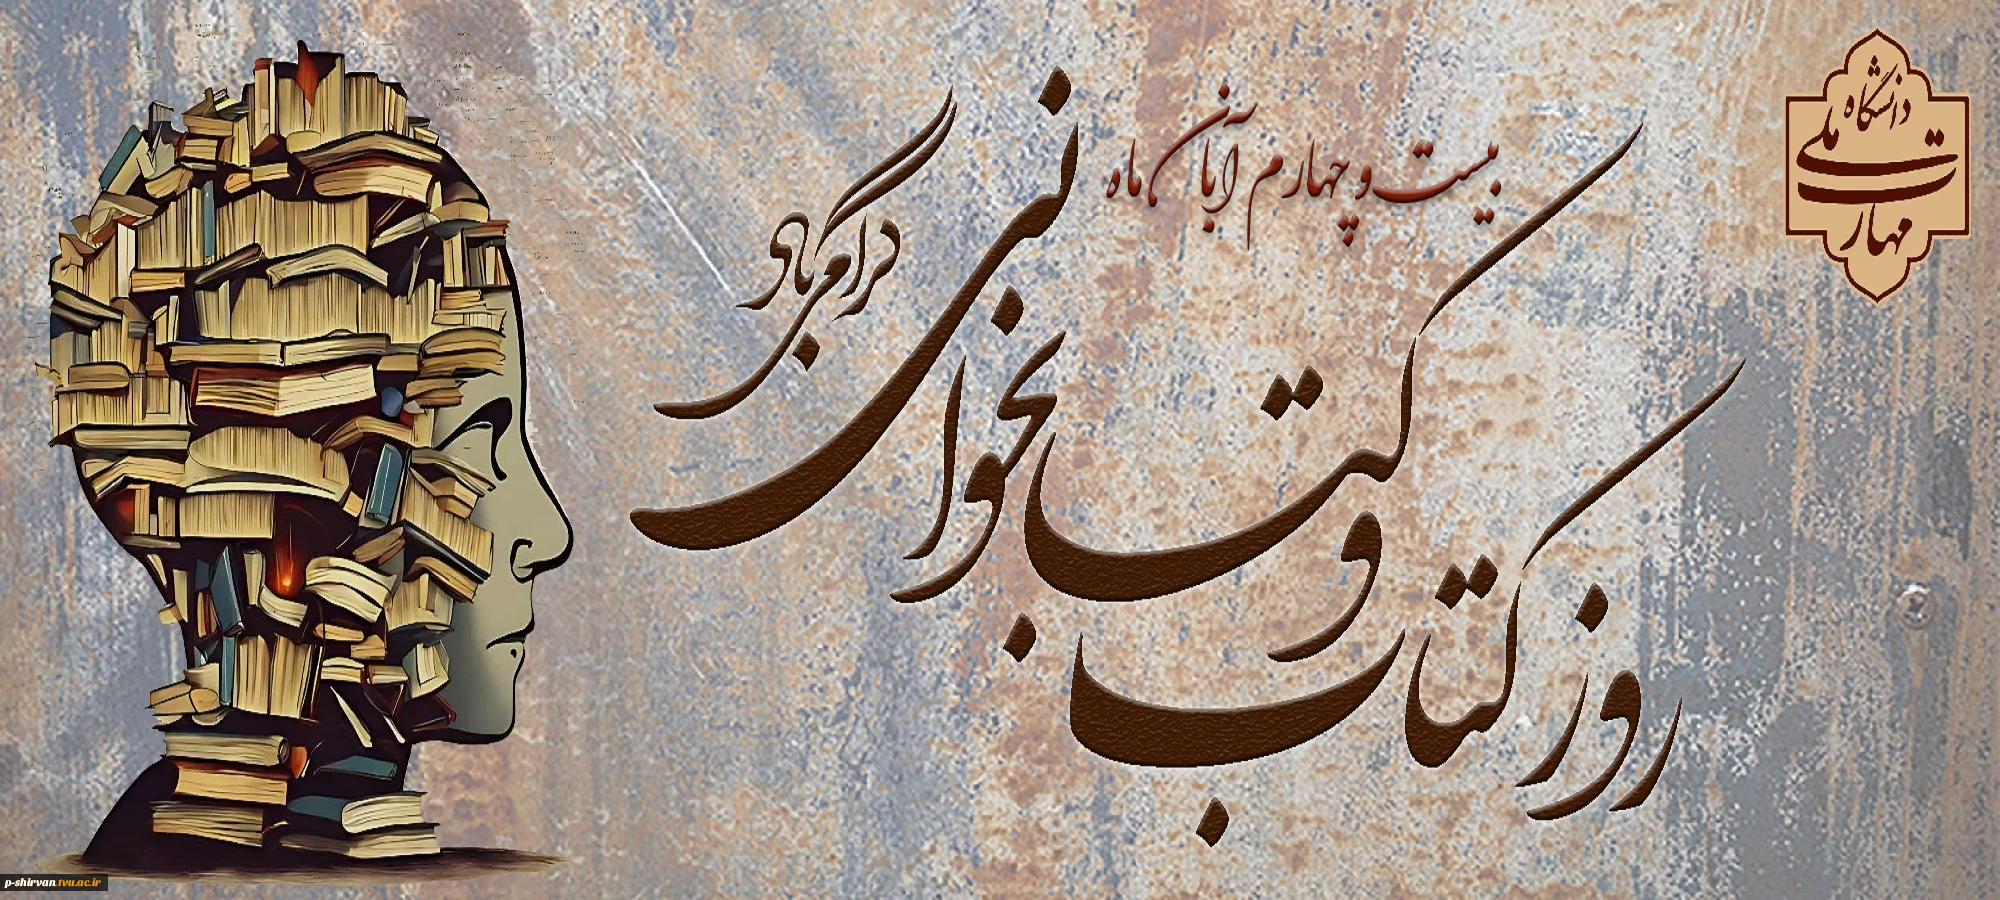 دانشگاه
ملی
مهارت
بیست و چهارم آبان ماه
روز کتاب
و کتابخوانی
گرامی باد
p-shirvan.tvu.ac.ir